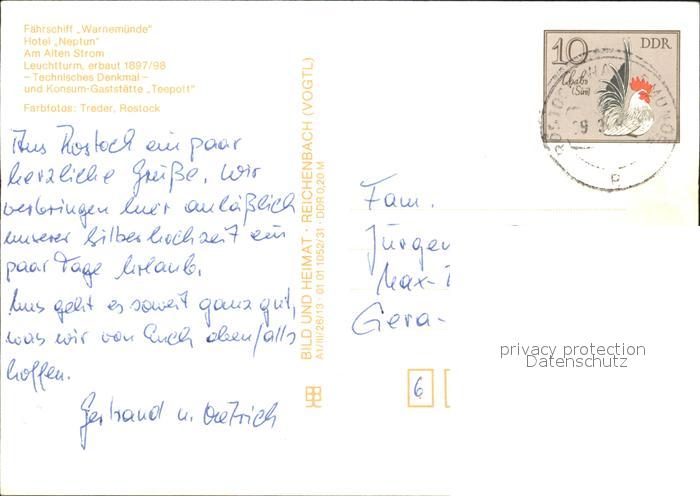 Fährschiff „Warnemünde"
Hotel „Neptun"
Am Alten Strom
Leuchtturm, erbaut 1897/98
– Technisches Denkmal –
und Konsum-Gaststätte „Teepott"
Farbfotos: Treder, Rostock
Aus Rostock ein paar
herzliche Grüße. Wir
verbringen hier anläßlich
unserer Silberhochzeit ein
paar Tage Urlaub.
Uns geht es soweit ganz gut,
was wir von Euch ebenfalls
hoffen.
Gerhard u.
BILD UND HEIMAT · REICHENBACH (VOGTL)
A1/III/26/13 · 01 01 1052/31 · DDR 0,20 M
10 DDR
Chabo
Fam.
Jürgen
Max-
Gera-
6
privacy protection
Datenschutz